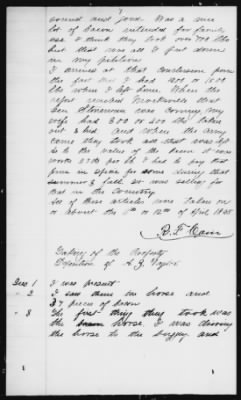 7
sound and good. Was a nice
lot of bacon intended for family
use I think they took over 700 lbs
but that was all I put down
in my petition
I arrived at that conclusion from
the fact that I had 900 or 1000
lbs when I left home. When the
report reached that
Gen Stoneman was coming my
wife had 300 or 200 lbs taken
out & hid and when the army
came they took all that was left
as to the value of the bacon it was
worth 25 cts per lb I had to pay that
price in specie for some during that
summer & fall. It was selling for
that in the Country
All of these articles were taken on
or about the 11th or 12th of April 1865
Taking of the Property
Deposition of A. J.
Ques. 1 I was present
" 2 I saw them take horse and
37 pieces of bacon
" 3 The first thing they took was
the horse. I was driving
the horse to the buggy and